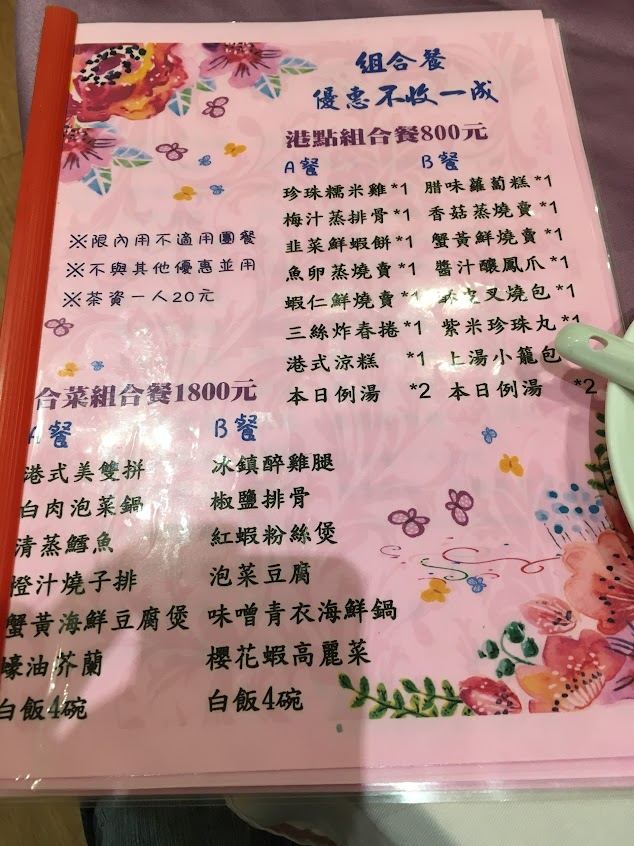 組合餐
優惠不收一成
港點組合餐800元
A餐 B餐
珍珠糯米雞*1 腊味蘿蔔糕*1
梅汁蒸排骨*1 香菇蒸燒賣*1
韭菜鮮蝦餅*1 蟹黃鮮燒賣*1
魚卵蒸燒賣*1 醬汁釀鳳爪*1
蝦仁鮮燒賣*1 皮叉燒包*1
三絲炸春捲*1 紫米珍珠丸*1
港式涼糕 *1 上湯小籠包
本日例湯 *2 本日例湯 *2
※限內用不適用團餐
※不與其他優惠並用
※茶資一人20元
合菜組合餐1800元
A餐 B餐
港式美雙拼 冰鎮醉雞腿
白肉泡菜鍋 椒鹽排骨
清蒸鱈魚 紅蝦粉絲煲
橙汁燒子排 泡菜豆腐
蟹黃海鮮豆腐煲 味噌青衣海鮮鍋
蠔油芥蘭 櫻花蝦高麗菜
白飯4碗 白飯4碗